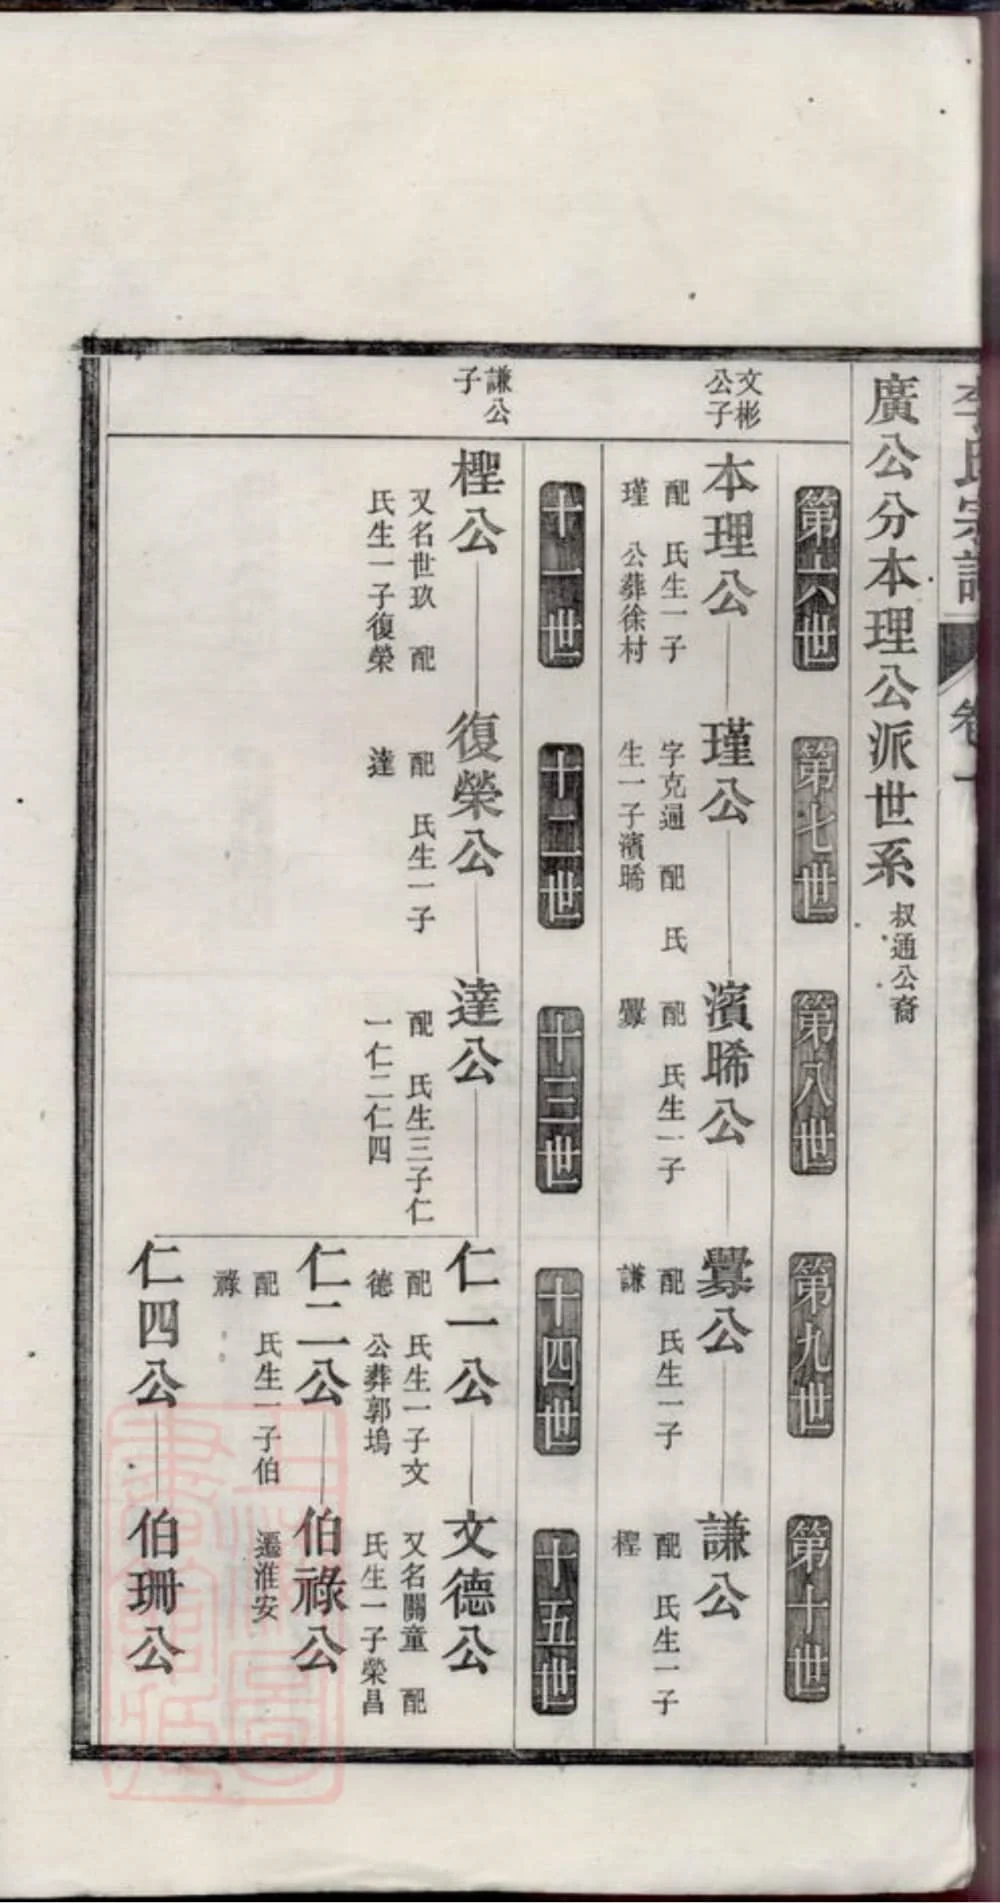 李氏宗譜
卷一
廣公分本理公派世系 叔通公裔
第六世
第七世
第八世
第九世
第十世
文彬
公子
本理公
配 氏生一子
瑾 公葬徐村
瑾公
字克通 配 氏
生一子濱晞
濱晞公
配 氏生一子
釁
釁公
配 氏生一子
謙
謙公
配 氏生一子
檉
十一世
十二世
十三世
十四世
十五世
謙公
子
檉公
又名世玖 配
氏生一子復榮
復榮公
配 氏生一子
達
達公
配 氏生三子仁
一仁二仁四
仁一公
配 氏生一子文
德 公葬郭塢
文德公
又名關童 配
氏生一子榮昌
仁二公
配 氏生一子伯
祿
伯祿公
遷淮安
仁四公
伯珊公